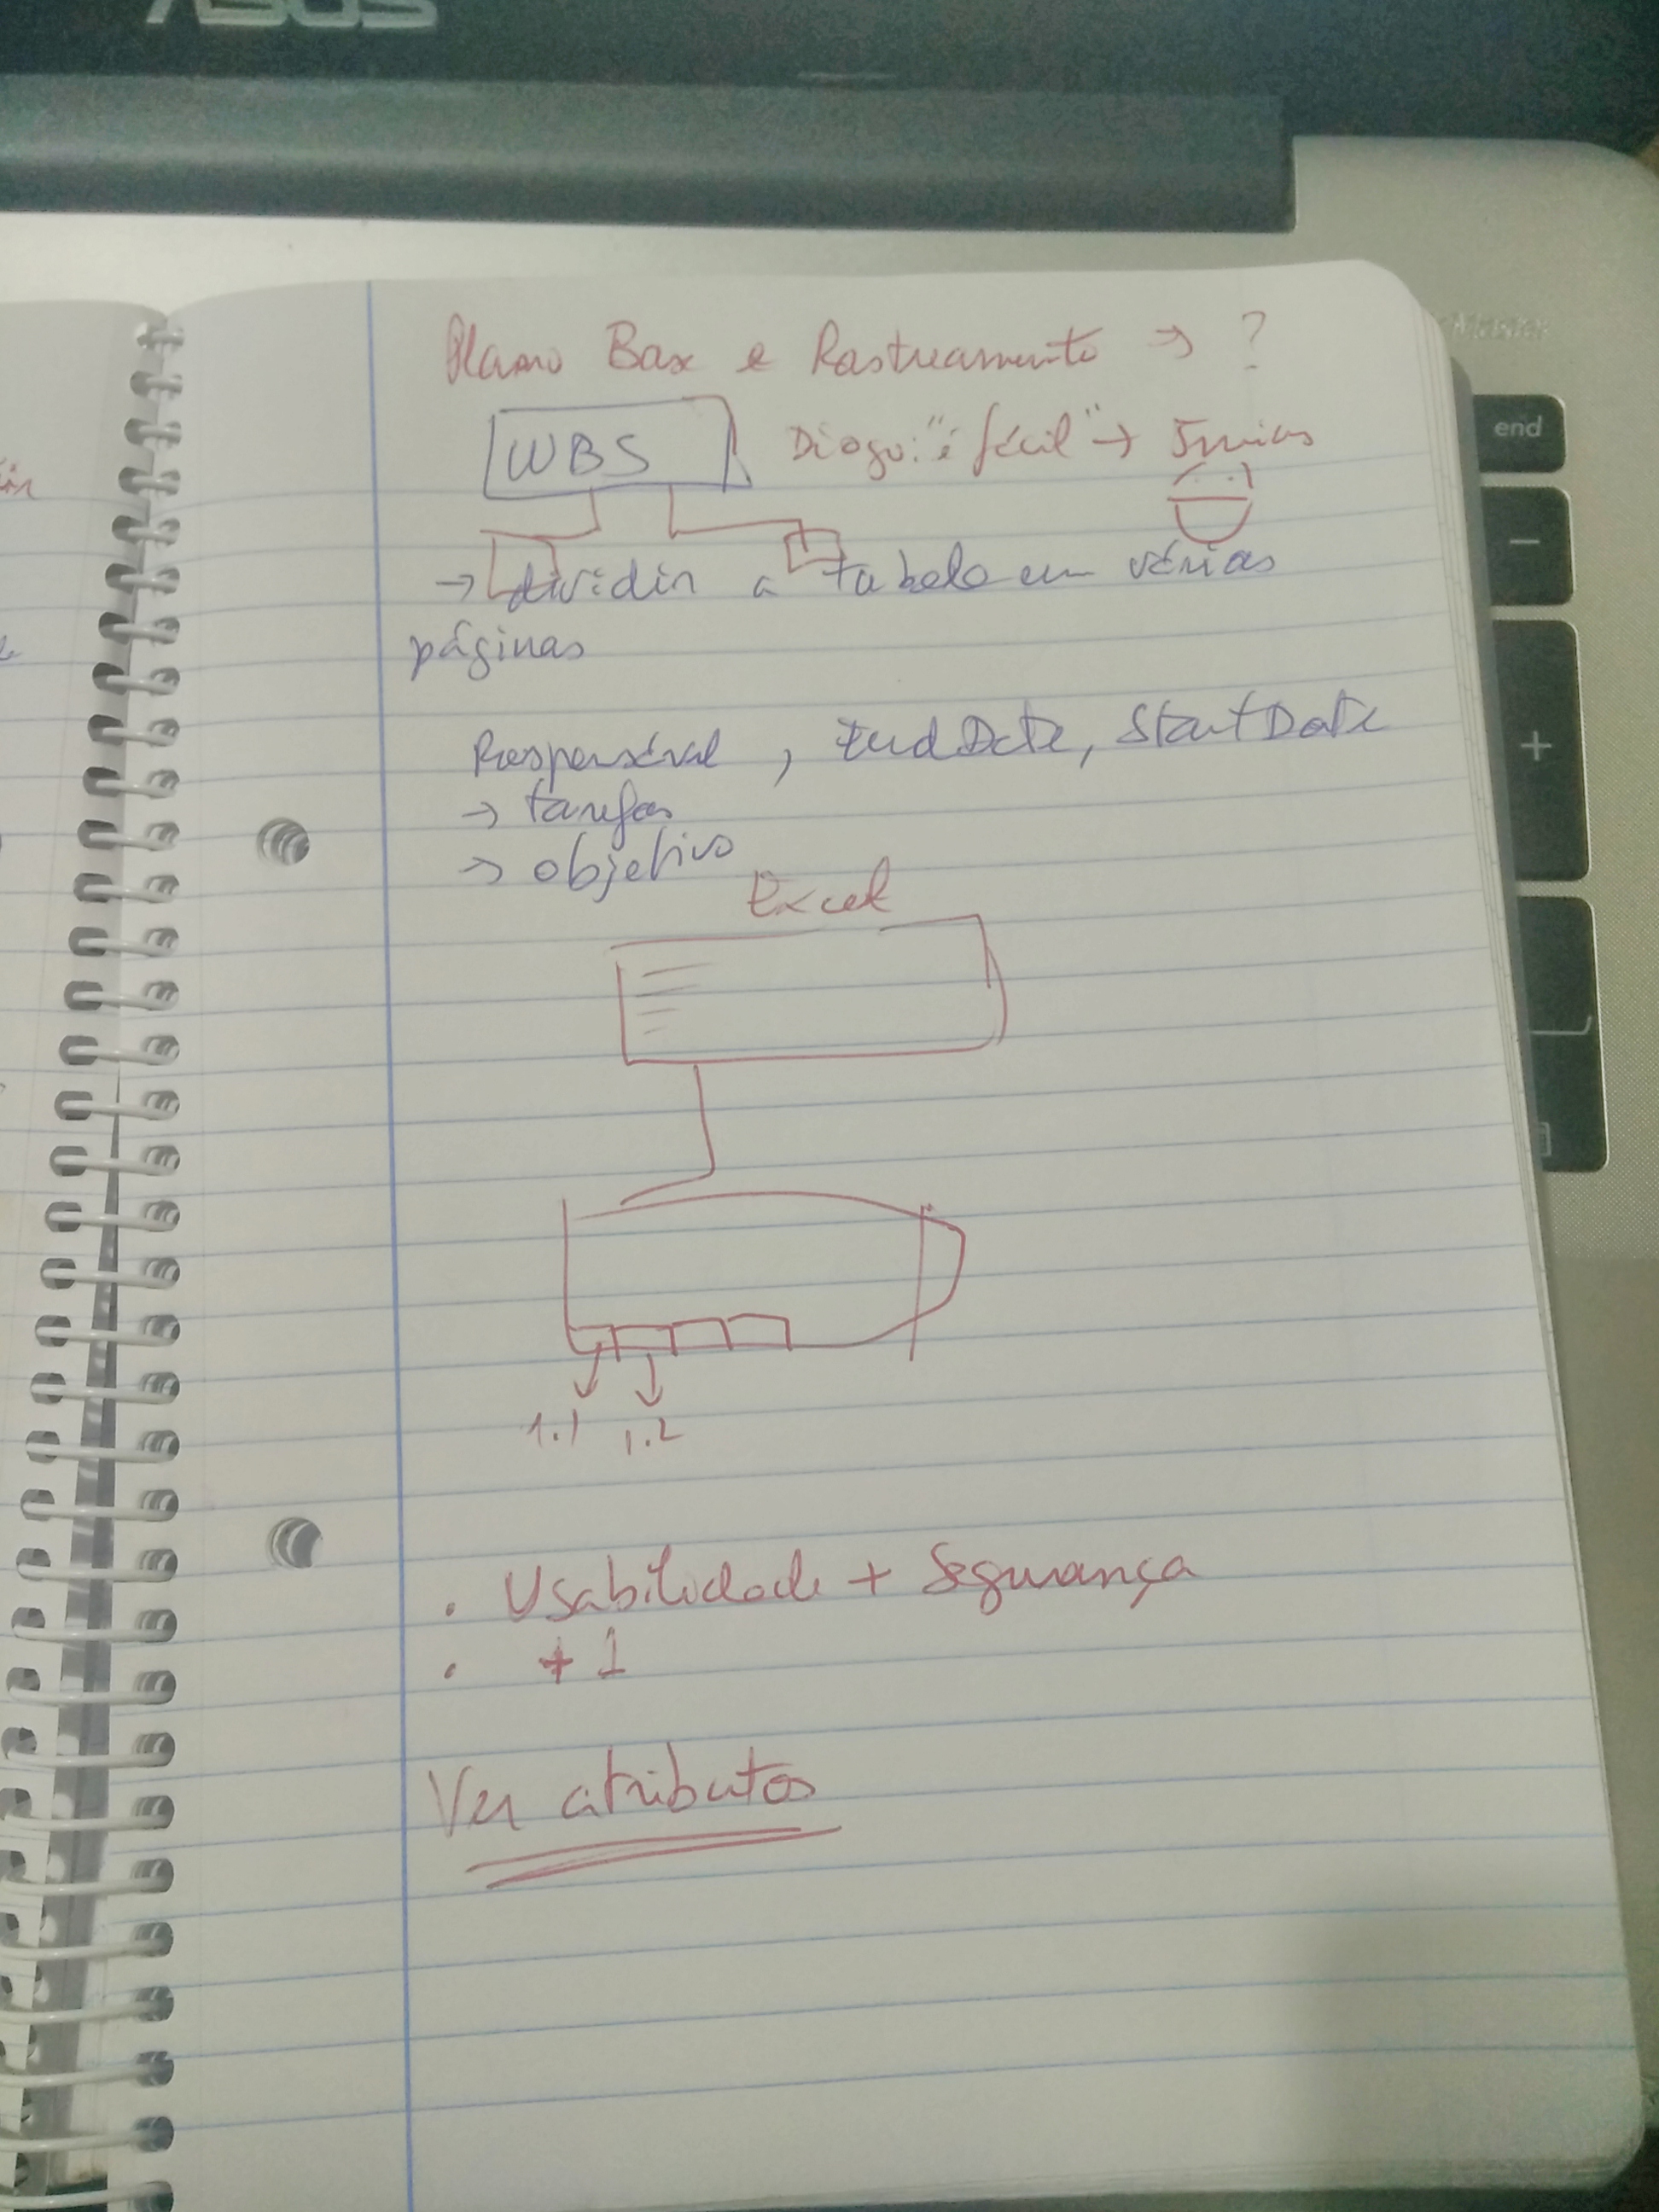 ASUS
Plano Base e Rastreamento → ?
WBS
Diogo: "é fácil" →
→ dividir a tabela em várias
páginas
Responsável , EndDate, StartDate
→ tarefas
→ objetivo
Excel
1.1 1.2
. Usabilidade + Segurança
. + 1
Ver atributos
end
−
+